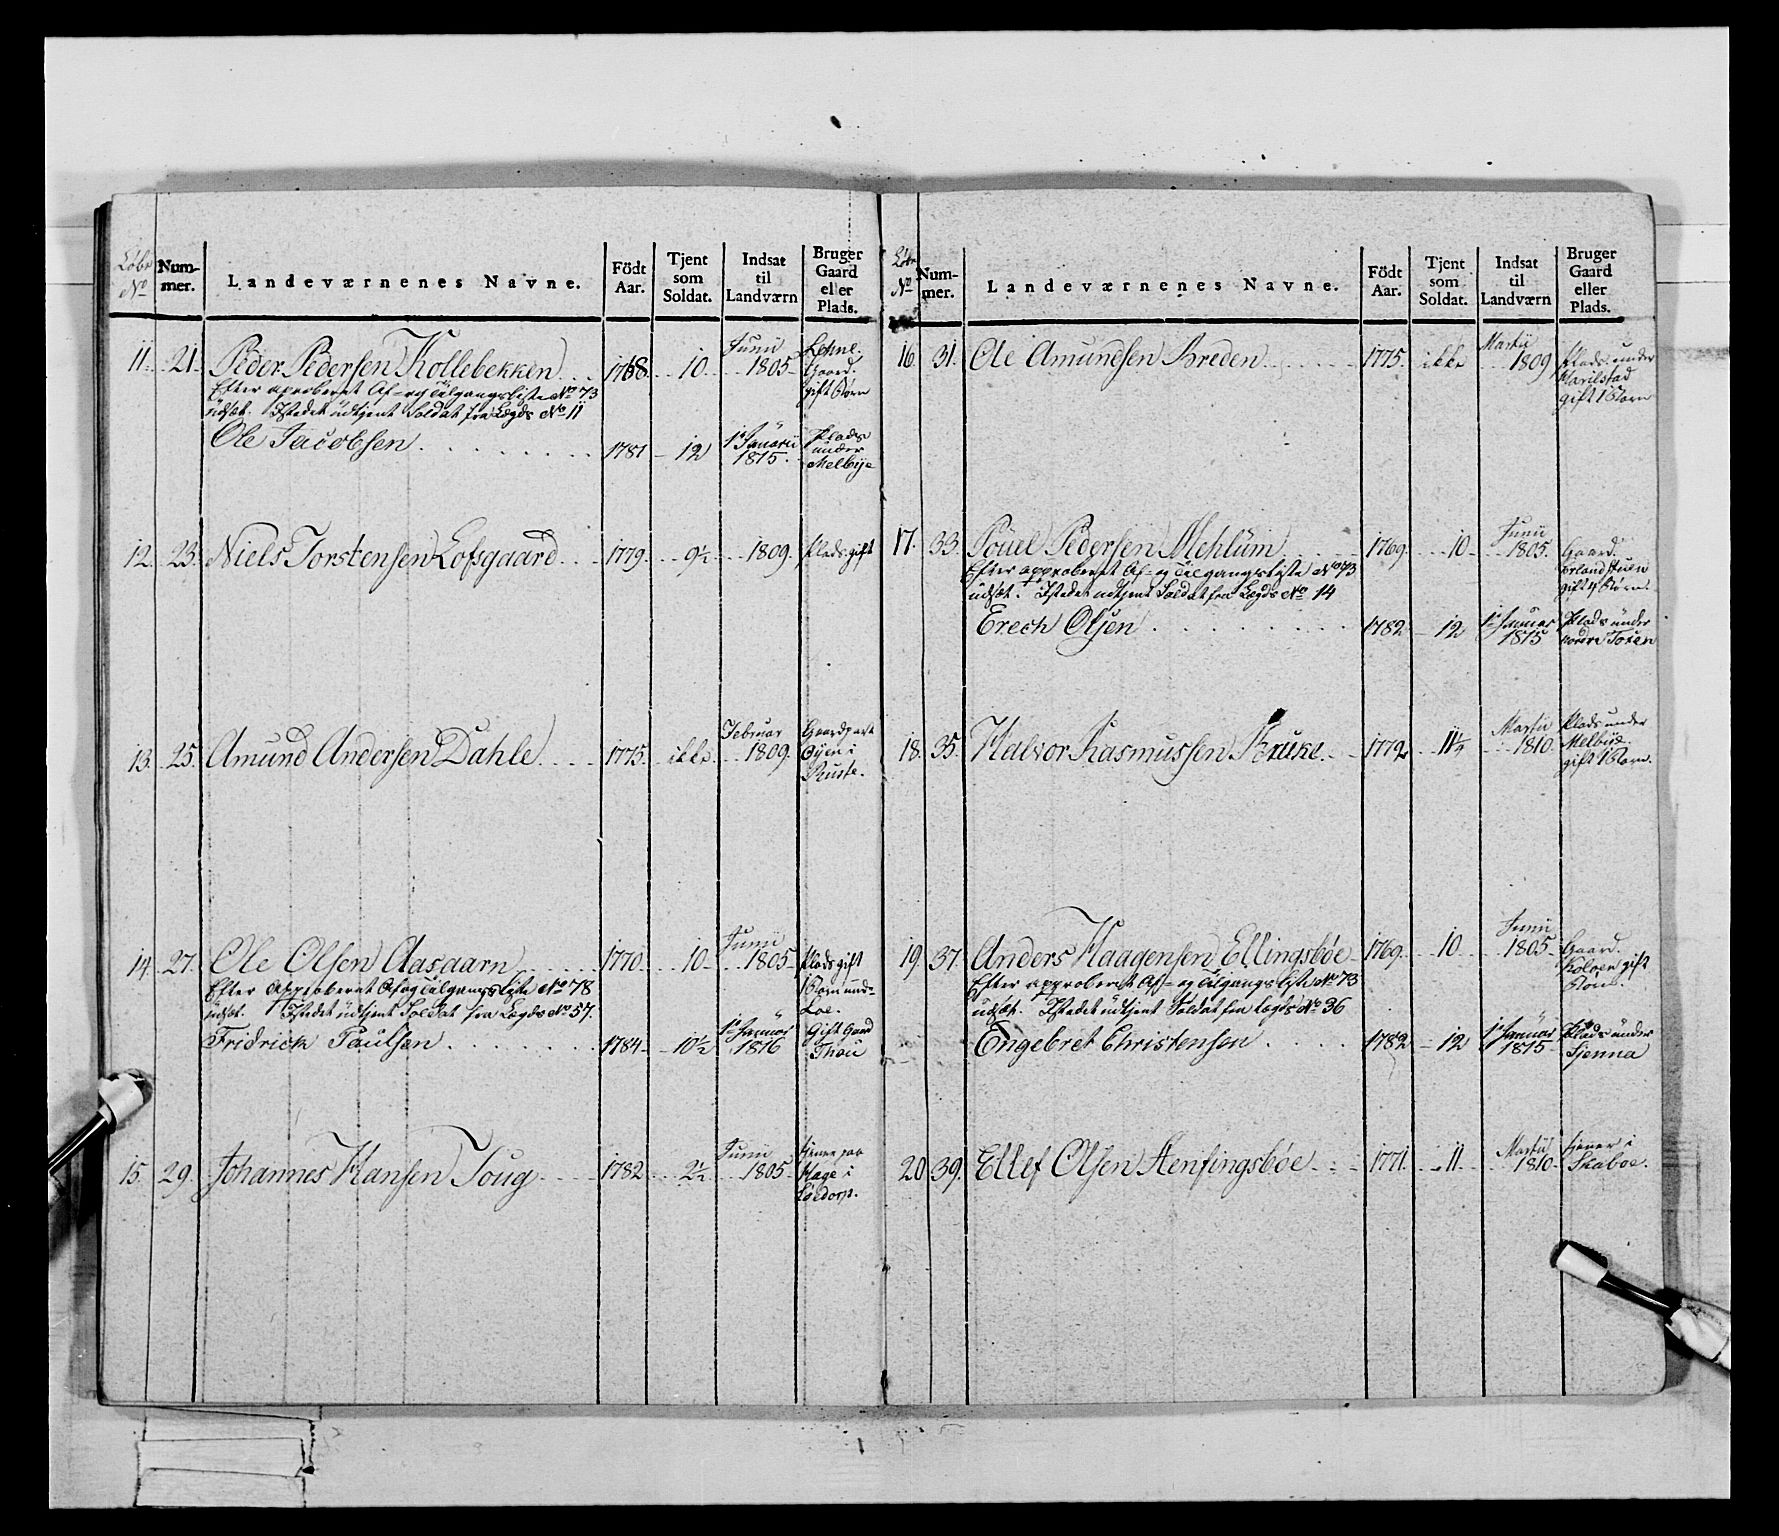 Løbe No
Num-mer.
Landeværnenes Navne.
Födt Aar.
Tjent som Soldat.
Indsat til Landværn
Bruger Gaard eller Plads.
11. 21. Peder Pedersen Kollebekken 1768. 10 Junii 1805 Gaard. gift Børn
Efter aproberet Af- og Tilgangsliste No 73
udsat. Istedet udtjent Soldat fra Lægds No 11
Ole Jacobsen 1781 12 1te Januarii 1815. Plads under Melbye
12. 23. Niels Torstensen Lofsgaard 1779. 9½ 1809. Plads gift
13. 25. Amund Andersen Dahle 1775. ikke Februar 1809. Gaardpart Øyen i Ruste.
14. 27. Ole Olsen Aasaarn 1770. 10 Junii 1805 Plads gift 1 Barn under Loe.
Efter Approberet Af og Tilgangs liste No 78
udsat. Istedet udtjent Soldat fra Lægds No 57.
Fridrick Paulsen 1784 10½ 1te Januar 1816 Gift Gaard Thou
15. 29. Johannes Hansen Toug 1782 2½ Junii 1805 tjener paa Hage i
Løbe No
Num-mer.
Landeværnenes Navne.
Födt Aar.
Tjent som Soldat.
Indsat til Landværn
Bruger Gaard eller Plads.
16. 31. Ole Amundsen Breden 1775. ikke Martii 1809 Plads under gift 1 Barn
17. 33. Pouel Pedersen Mehlum 1769. 10 Junii 1805. Gaard. gift 4 Børn.
Efter approberet Af- og Tilgangsliste No 73
udsat. Istedet udtjent Soldat fra Lægds No 14
Erech Olsen 1782 12 1te Januar 1815 Plads under nordre Toxen
18. 35. Halvor Rasmussen Bruke 1772 11¼ Martii 1810 Plads under Melbye gift 1 Barn.
19. 37. Anders Haagensen Ellingsbøe 1769. 10 Junii 1805 Gaard. Kolven gift Børn.
Efter approberet Af- og Tilgangsliste No 73
udsat. Istedet udtjent Soldat fra Lægds No 36
Engebret Christensen 1782 12 1te Januar 1815 Plads under Sjenna
20 39. Ellef Olsen Henfingsbøe 1771. 11 Martii 1810 tjener i Skaboe.